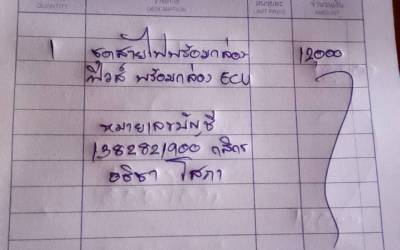 QUANTITY DESCRIPTION UNIT PRICE จำนวนเงิน AMOUNT
1 ชุดสายไฟพร้อมกล่อง 12000
ฟิวส์ พร้อมกล่อง ECU
หมายเลขบัญชี
1382821900 กสิกร
อธิชา โสภา